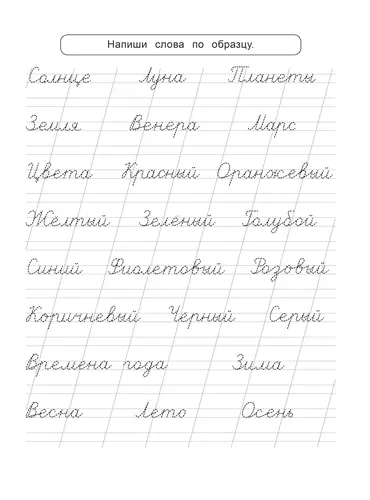 Напиши слова по образцу.
Солнце Луна Планеты
Земля Венера Марс
Цвета Красный Оранжевый
Желтый Зеленый Голубой
Синий Фиолетовый Розовый
Коричневый Черный Серый
Времена года Зима
Весна Лето Осень